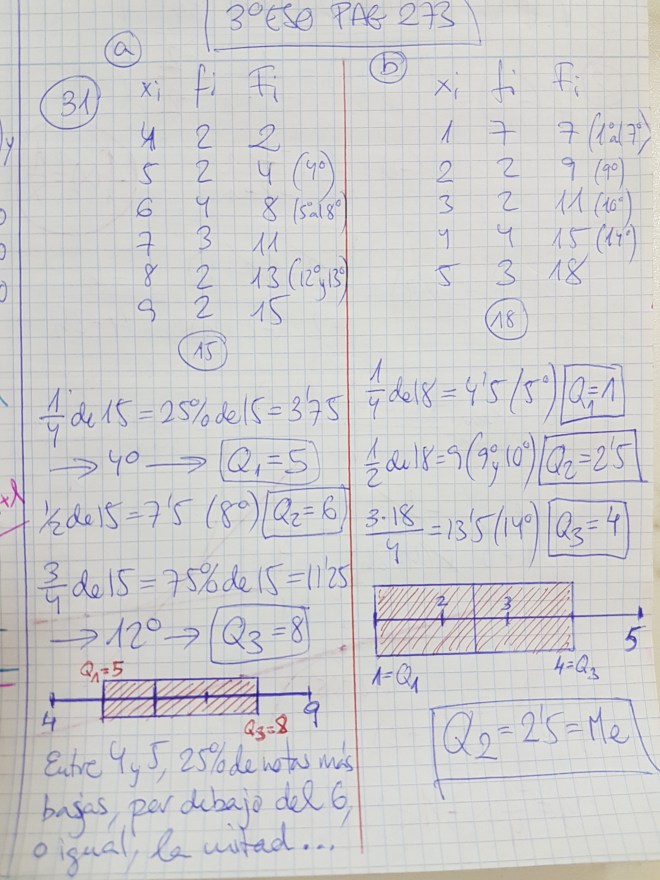 3º ESO PAG 273
a
31
xi fi Fi
4 2 2
5 2 4 (4º)
6 4 8 (5º al 8º)
7 3 11
8 2 13 (12º y 13º)
9 2 15
15
1/4 de 15 = 25% de 15 = 3'75
→ 4º → Q1 = 5
1/2 de 15 = 7'5 (8º) Q2 = 6
3/4 de 15 = 75% de 15 = 11'25
→ 12º → Q3 = 8
Q1 = 5
4 9
Q3 = 8
Entre 4 y 5, 25% de notas más
bajas, por debajo del 6,
o igual, la mitad...
b
xi fi Fi
1 7 7 (1º al 7º)
2 2 9 (9º)
3 2 11 (10º)
4 4 15 (14º)
5 3 18
18
1/4 de 18 = 4'5 (5º) Q1 = 1
1/2 de 18 = 9 (9º y 10º) Q2 = 2'5
3·18/4 = 13'5 (14º) Q3 = 4
2 3
5
1 = Q1 4 = Q3
Q2 = 2'5 = Me